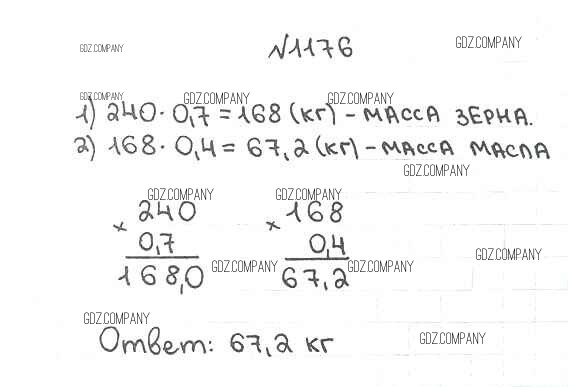 №1176
GDZ.COMPANY GDZ.COMPANY
GDZ.COMPANY GDZ.COMPANY GDZ.COMPANY
1) 240 · 0,7 = 168 (кг) - МАССА ЗЕРНА.
2) 168 · 0,4 = 67,2 (кг) - МАССА МАСЛА
GDZ.COMPANY
GDZ.COMPANY GDZ.COMPANY
× 240 × 168
0,7 0,4
168,0 67,2
GDZ.COMPANY GDZ.COMPANY GDZ.COMPANY
GDZ.COMPANY
Ответ: 67,2 кг
GDZ.COMPANY